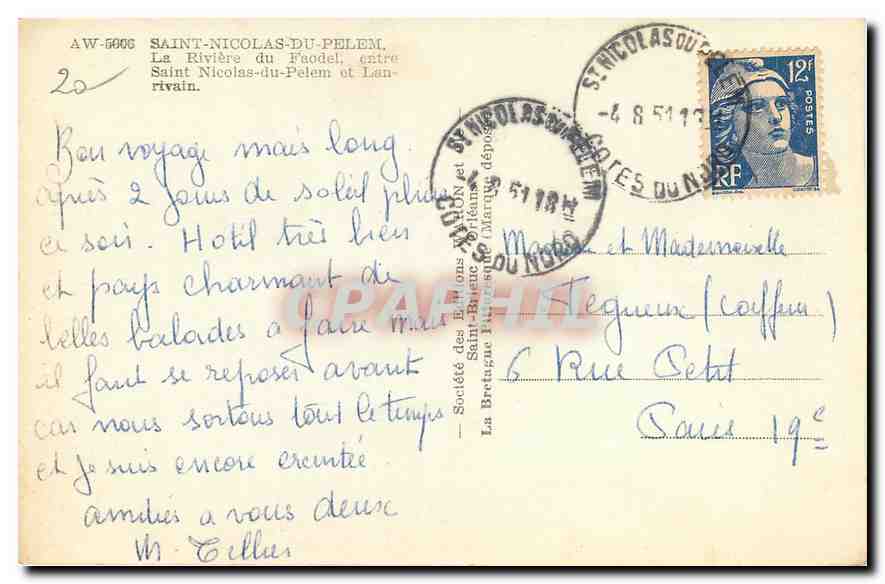 AW-5606 SAINT-NICOLAS-DU-PELEM.
La Rivière du Faodel, entre
Saint Nicolas-du-Pelem et Lan-
rivain.
20
Bon voyage mais long.
après 2 jours de soleil pluie
ce soir. Hotil très bien
et pays charmant de
belles balades a faire mais
il faut se reposer avant
car nous sortons tout le temps
et je suis encore ereintée
amitiés a vous deux
M. Tellier
Société des Editions et
Saint-Brieuc - Orléans
La Bretagne Pittoresque (Marque déposée)
ST NICOLAS DU PELEM
-4-8 51 18 H
COTES DU NORD
ST NICOLAS DU PELEM
-4 8 51 18
COTES DU NORD
12F
POSTES
RF
et Mademoiselle
Tegneux (coiffeur)
6 Rue Petit
Paris 19e
CPAPHIL